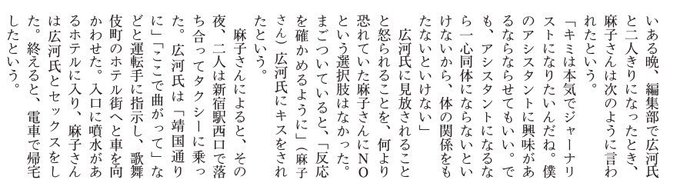 いある晩、編集部で広河氏
と二人きりになったとき、
麻子さんは次のように言わ
れたという。
「キミは本気でジャーナリ
ストになりたいんだね。僕
のアシスタントに興味があ
るならならせてもいい。で
も、アシスタントになるな
ら一心同体にならないとい
けないから、体の関係をも
たないといけない」
広河氏に見放されること
と怒られることを、何より
恐れていた麻子さんにNO
という選択肢はなかった。
まごついていると、「反応
を確かめるように」(麻子
さん)広河氏にキスをされ
たという。
麻子さんによると、その
夜、二人は新宿駅西口で落
ち合ってタクシーに乗っ
た。広河氏は「靖国通り
に」「ここで曲がって」な
どと運転手に指示し、歌舞
伎町のホテル街へと車を向
かわせた。入口に噴水があ
るホテルに入り、麻子さん
は広河氏とセックスをし
た。終えると、電車で帰宅
したという。